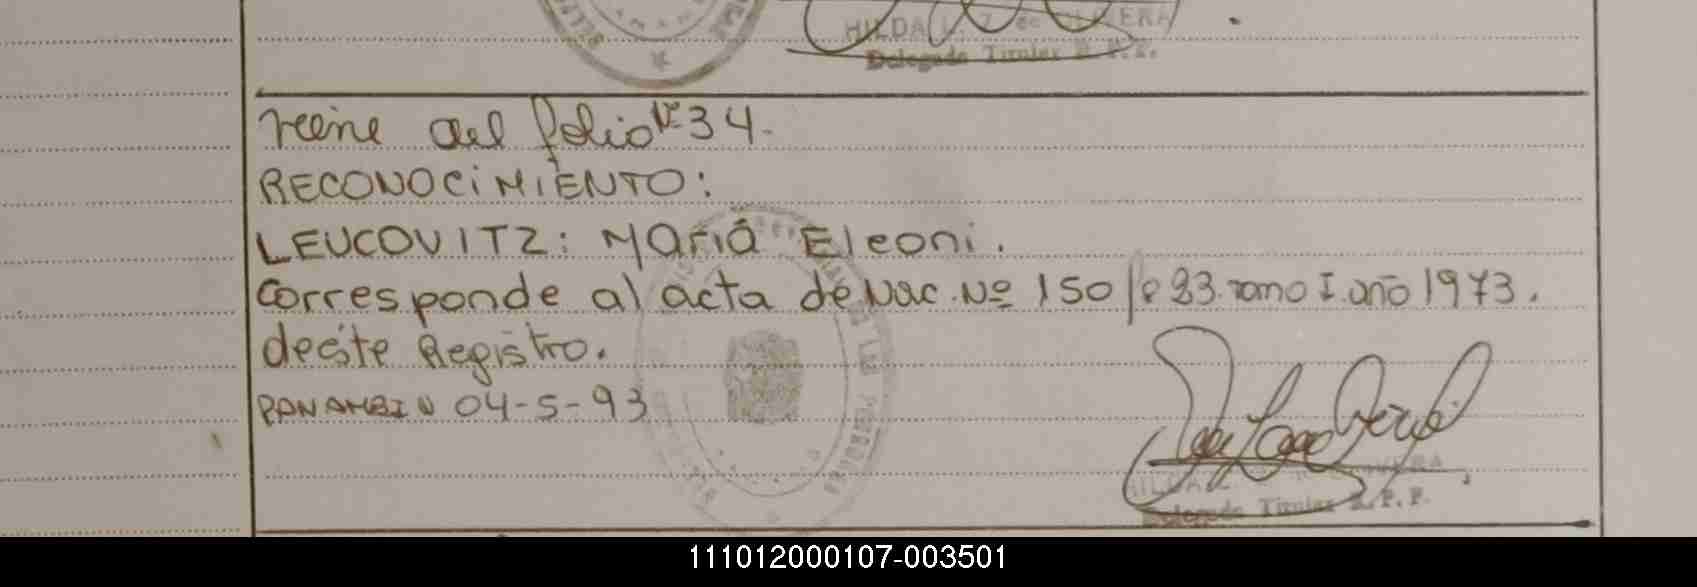 HILDA L. Z. de OLIVERA
Delegada Titular R. P. P.
Viene del folio Nº 34.
RECONOCIMIENTO:
LEUCOVITZ: María Eleoni.
Corresponde al acta de Nac. Nº 150 fº 83. Tomo I. año 1973.
deéste Registro.
PANAMBI N 04-5-93
DE LAS PERSONAS
HILDA L. OLIVERA
Delegada Titular R. P. P.
111012000107-003501